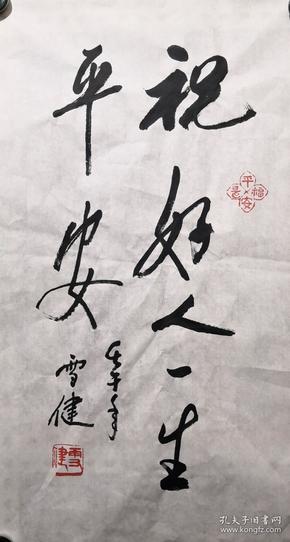 祝好人一生
平安
壬午年
雪健
平安是福
雪健
孔夫子旧书网